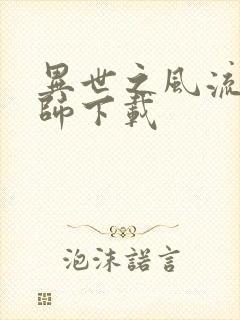 異世之風流
師下載
泡沫諾言